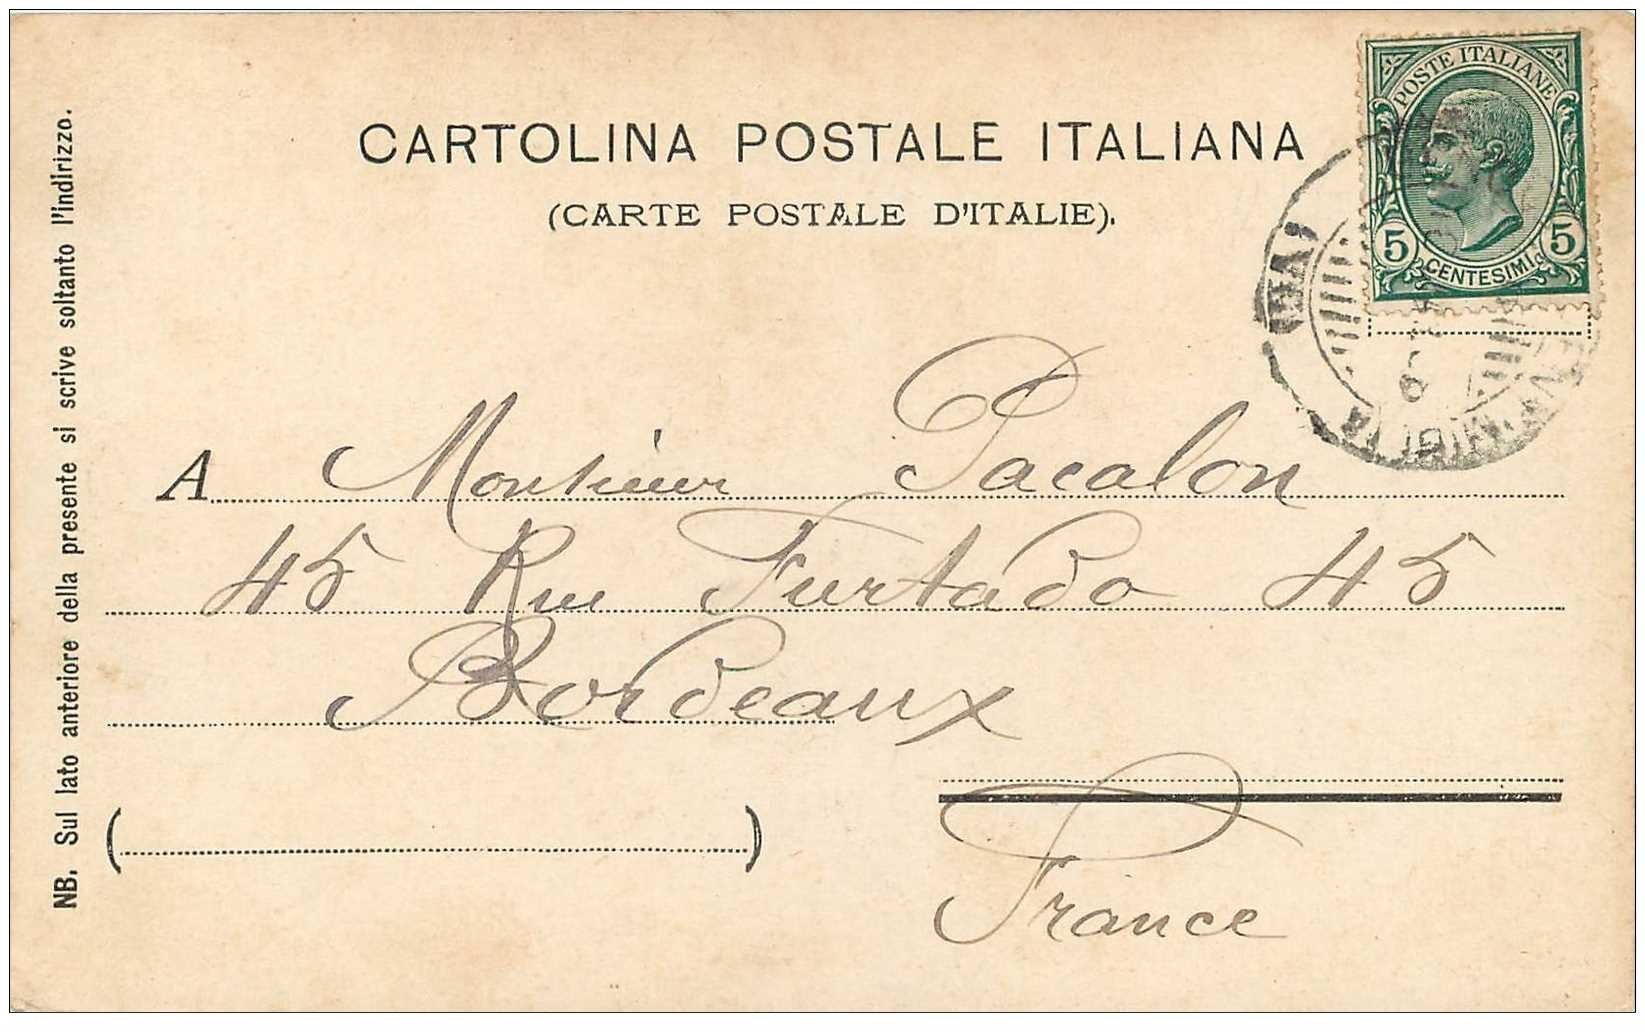 CARTOLINA POSTALE ITALIANA
(CARTE POSTALE D'ITALIE).
POSTE ITALIANE
5 5
CENTESIMI
A Monsieur Pacalon
45 Rue Furtado 45
Bordeaux
France
NB. Sul lato anteriore della presente si scrive soltanto l'indirizzo.